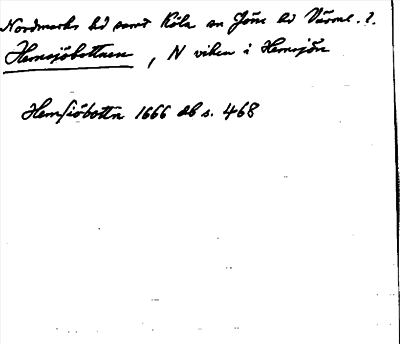 Nordmarks hd samt Köla sn Jösse hd Värml. 2.
Hemsjöbottnen, N viken i Hemsjön
Hemsiöbottn 1666 db s. 468